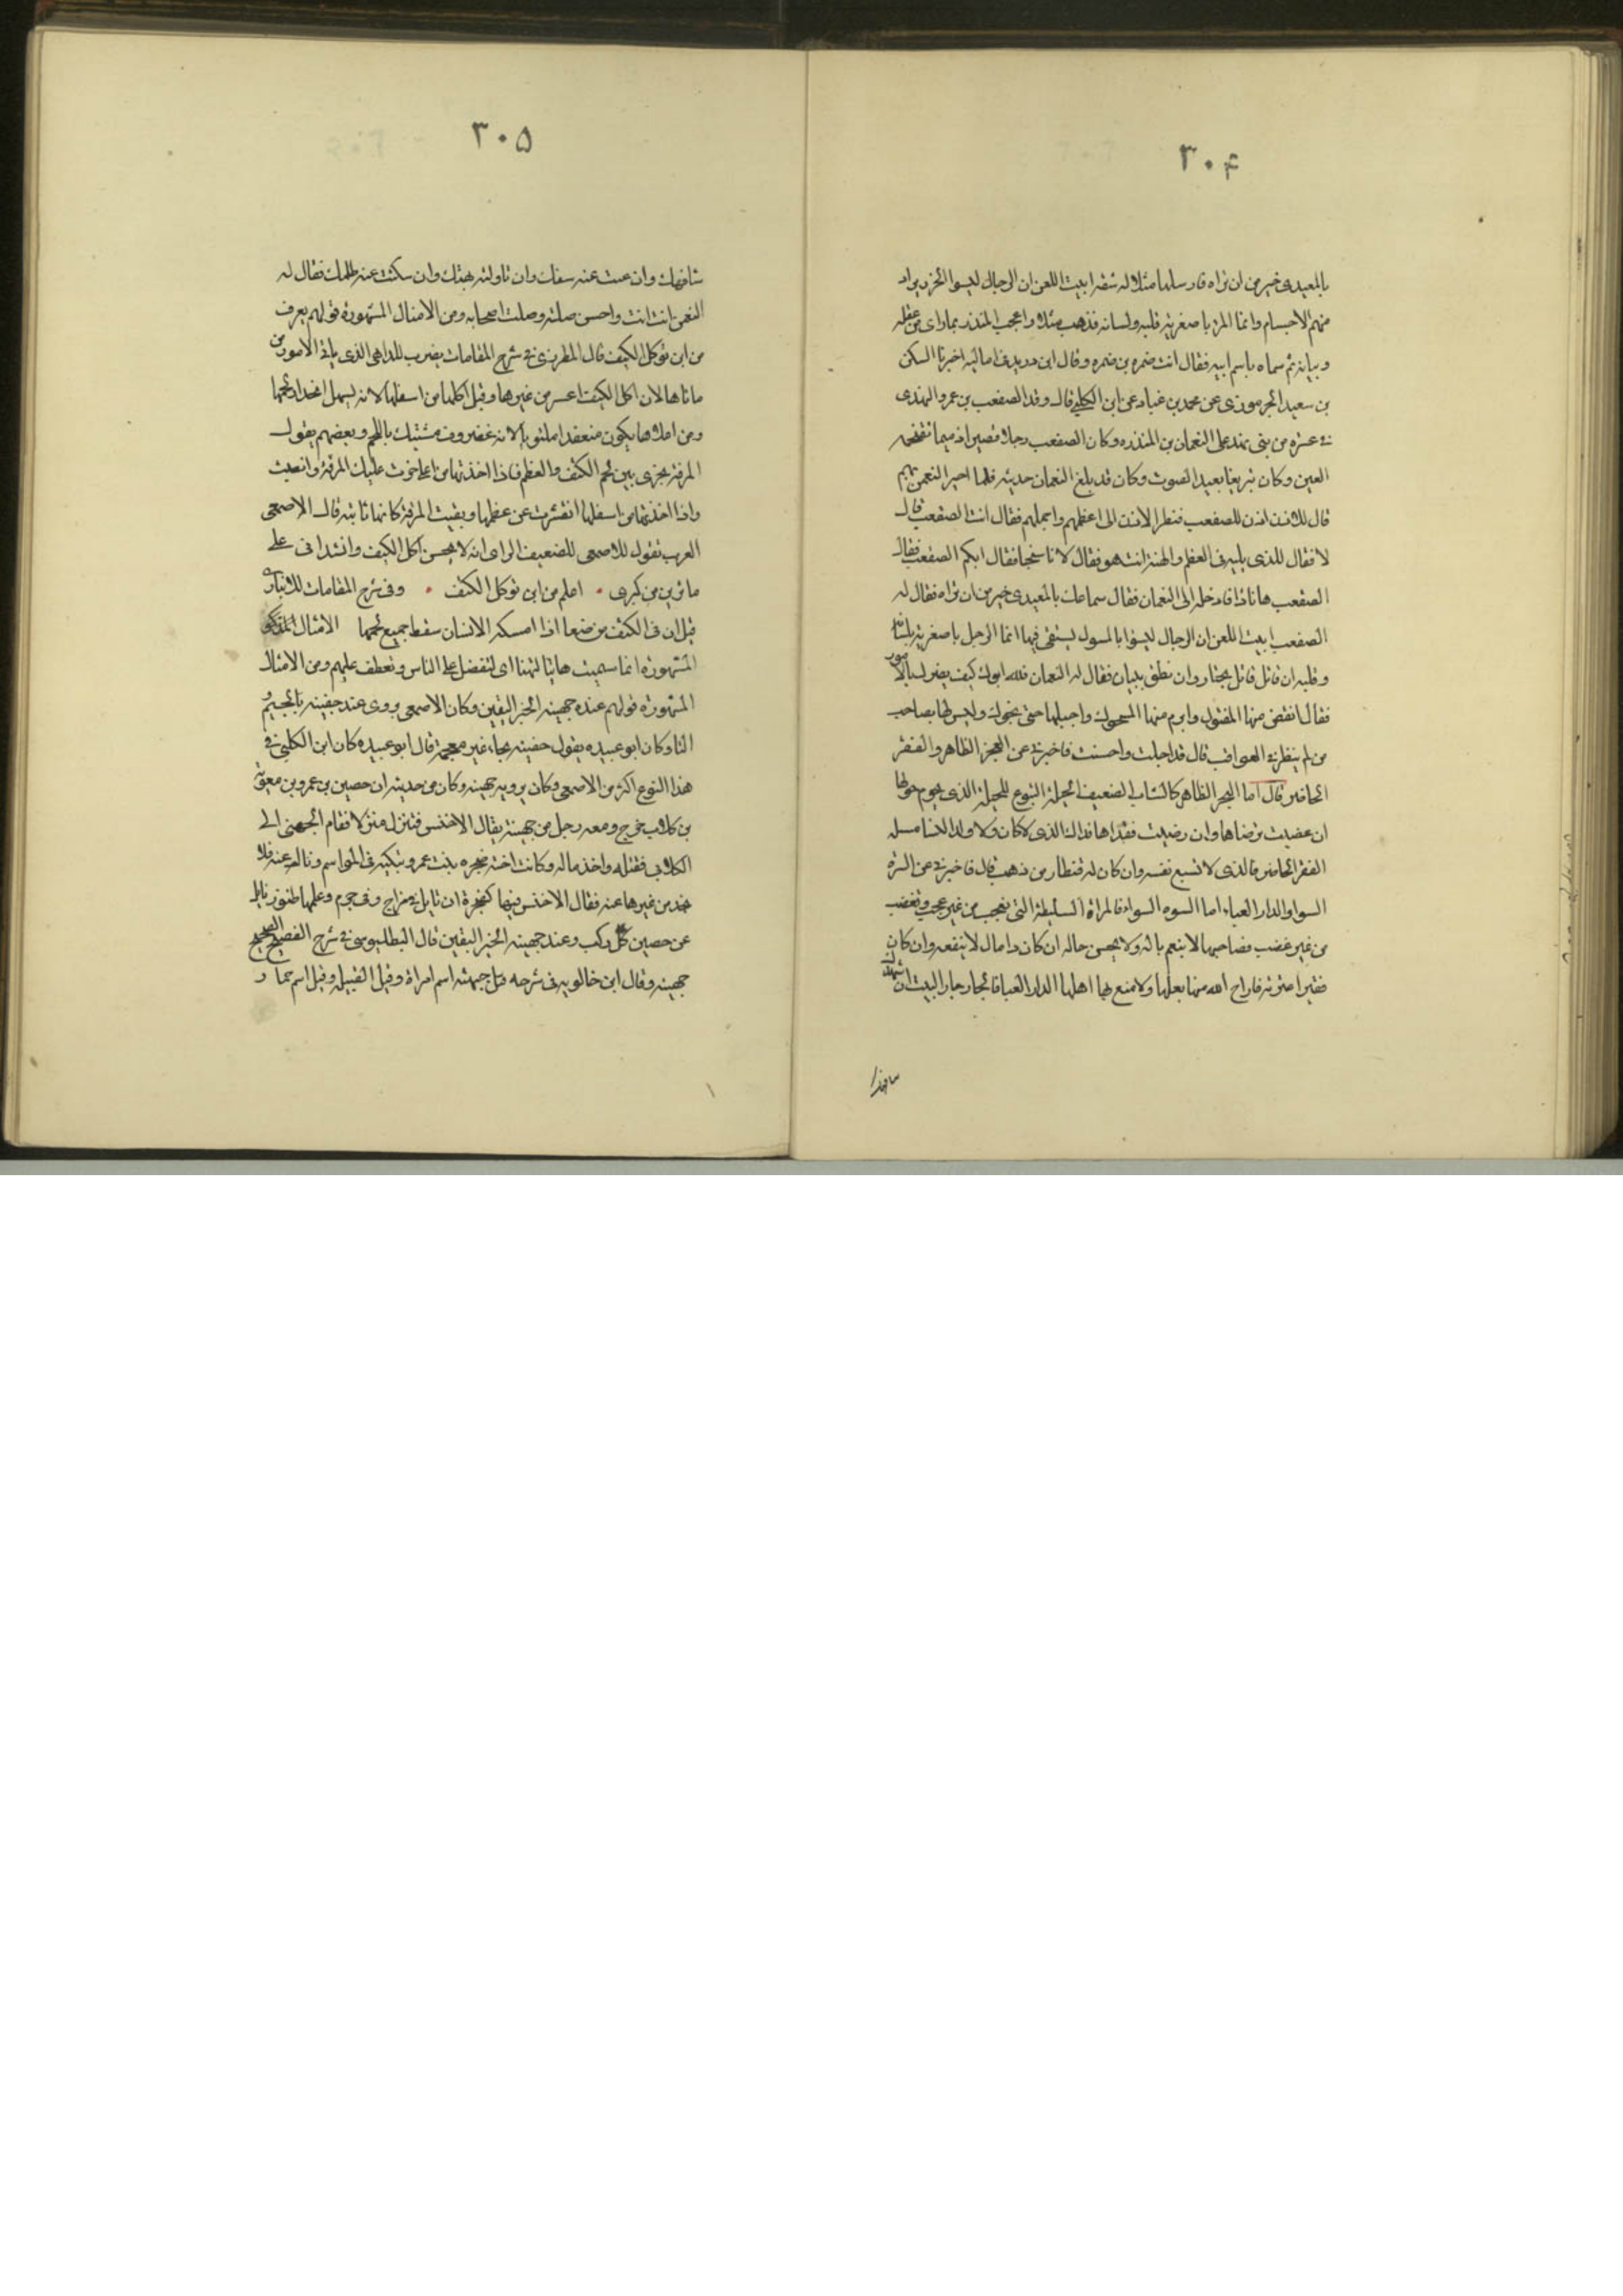 ۳۰۴
بالمعیدی خیر من ان تراه فارسلها مثلا له شقه ابیت اللعن ان الرجال لیسوا الجزر یراد
منهم الاجسام وانما المرء باصغریه قلبه ولسانه فذهب مثلا واعجب المنذر بما رای من عقله
وبیانه ثم سماه باسم ابیه فقال انت ضمره بن ضمره وقال ابن درید فی امالیه اخبرنا السکن
بن سعید الجرموزی عن محمد بن عباد عن ابن الکلبی قال وفد الصقعب بن عمرو النهدی
فی عشره من بنی نهد علی النعمان بن المنذر وکان الصقعب رجلا قصیرا دمیما تقتحمه
العین وکان شریفا بعید الصوت وکان قد بلغ النعمان حدیثه فلما اخبر النعمن بهم
قال للاذن اذن للصقعب فنظر الاذن الی اعظمهم واجملهم فقال انت الصقعب قال
لا فقال للذی یلیه فی العظم والهیئه انت هو فقال لا فاستحیا فقال ایکم الصقعب فقال
الصقعب هانا ذا فادخله الی النعمان فقال سماعک بالمعیدی خیر من ان تراه فقال له
الصقعب ابیت اللعن ان الرجال لیسوا بالمسوک یستقی فیها انما الرجل باصغریه بلسانه
وقلبه ان قاتل قاتل بجنان وان نطق ببیان فقال له النعمان فلله ابوک کیف بصرک بالامور
فقال انقض منها المفتول وابرم منها المسحول واجیلها حتی تجول ولیس لها بصاحب
من لم ینظر فی العواقب قال قد اجملت واحسنت فاخبرنی عن العجز الظاهر والفقر
الحاضر قال اما العجز الظاهر کالشاب الضعیف الحیلة التبوع للحلیلة الذی یحوم حولها
ان غضبت ترضاها وان رضیت فقداها فذاک الذی لا کان ولا ولد النسا مثله
الفقر الحاضر فالذی لا تشبع نفسه وان کان له قنطار من ذهب قال فاخبرنی عن السوه
السوا والدار العیاء اما السوه السواء فالمراة السلیطة التی تعجب من غیر عجب وتغضب
من غیر غضب فصاحبها لا ینعم باله ولا یحسن حاله ان کان ذا مال لا ینفعه وان کان
فقیرا عیرته فاراح الله منها بعلها ولا متع بها اهلها الدار العیا فالجار جار البیت ان شهدک
سافهک
۳۰۵
شافهک وان غبت عنه سفک وان تاولته بهتک وان سکتت عنه ظلمک فقال له
النعمن انت انت واحسن صلته وصلت اصحابه ومن الامثال المشهورة قولهم یعرف
من این توکل الکتف قال المطرزی فی شرح المقامات یضرب للداهی الذی یاتی الامور من
ماتاها لان اکل الکتف اعسر من غیرها وقیل اکلها من اسفلها لانه یسهل انحدار لحمها
ومن اعلاها یکون منعقدا ملتویا لانه غضروف مشتبک باللحم وبعضهم یقول
المرقة یجری بین لحم الکتف والعظم فاذا اخذتها من اعلی خرت علیک المرقة وانصبت
واذا اخذتها من اسفلها انقشرت عن عظمها وبقیت المرقة کانها ثابته قال الاصمعی
العرب تقول للاصمعی للضعیف الرای انه لا یحسن اکل الکتف وانشد انی علی
ما ترین من کبری . اعلم من این توکل الکتف . وفی شرح المقامات للانباری
قیل ان فی الکتف موضعا اذا امسکه الانسان سقط جمیع لحمها الامثال
المشهورة انما سمیت هانئا لتهنا ای لتفضل علی الناس وتعطف علیهم ومن الامثال
المشهورة قولهم عنده جهینه الخبر الیقین وکان الاصمعی یروی عند جفینه بالجیم و
الفا وکان ابو عبیده یقول حفینه بحاء غیر معجمة قال ابو عبیده کان ابن الکلبی فی
هذا النوع اکثر من الاصمعی وکان یرویه جهینه وکان من حدیثه ان حصین بن عمرو بن معویة
بن کلاب خرج ومعه رجل من جهینة یقال الاخنس فنزل منزلا فقام الجهنی الی
الکلابی فقتله واخذ ماله وکانت اخته صخره بنت عمرو تبکیه فی المواسم وتسال عنه فلا
تجد من غیرها عنه فقال الاخنس فیها کصخرة ان تسایل فی مراح وفی جرم وعلمها ظنون تسایل
عن حصین کل رکب وعند جهینه الخبر الیقین قال البطلیوسی فی شرح الفصیح الصحیح
جهینه وقال ابن خالویه فی شرحه قیل جهینه اسم امراة وقیل القبیله وقیل اسم حمار